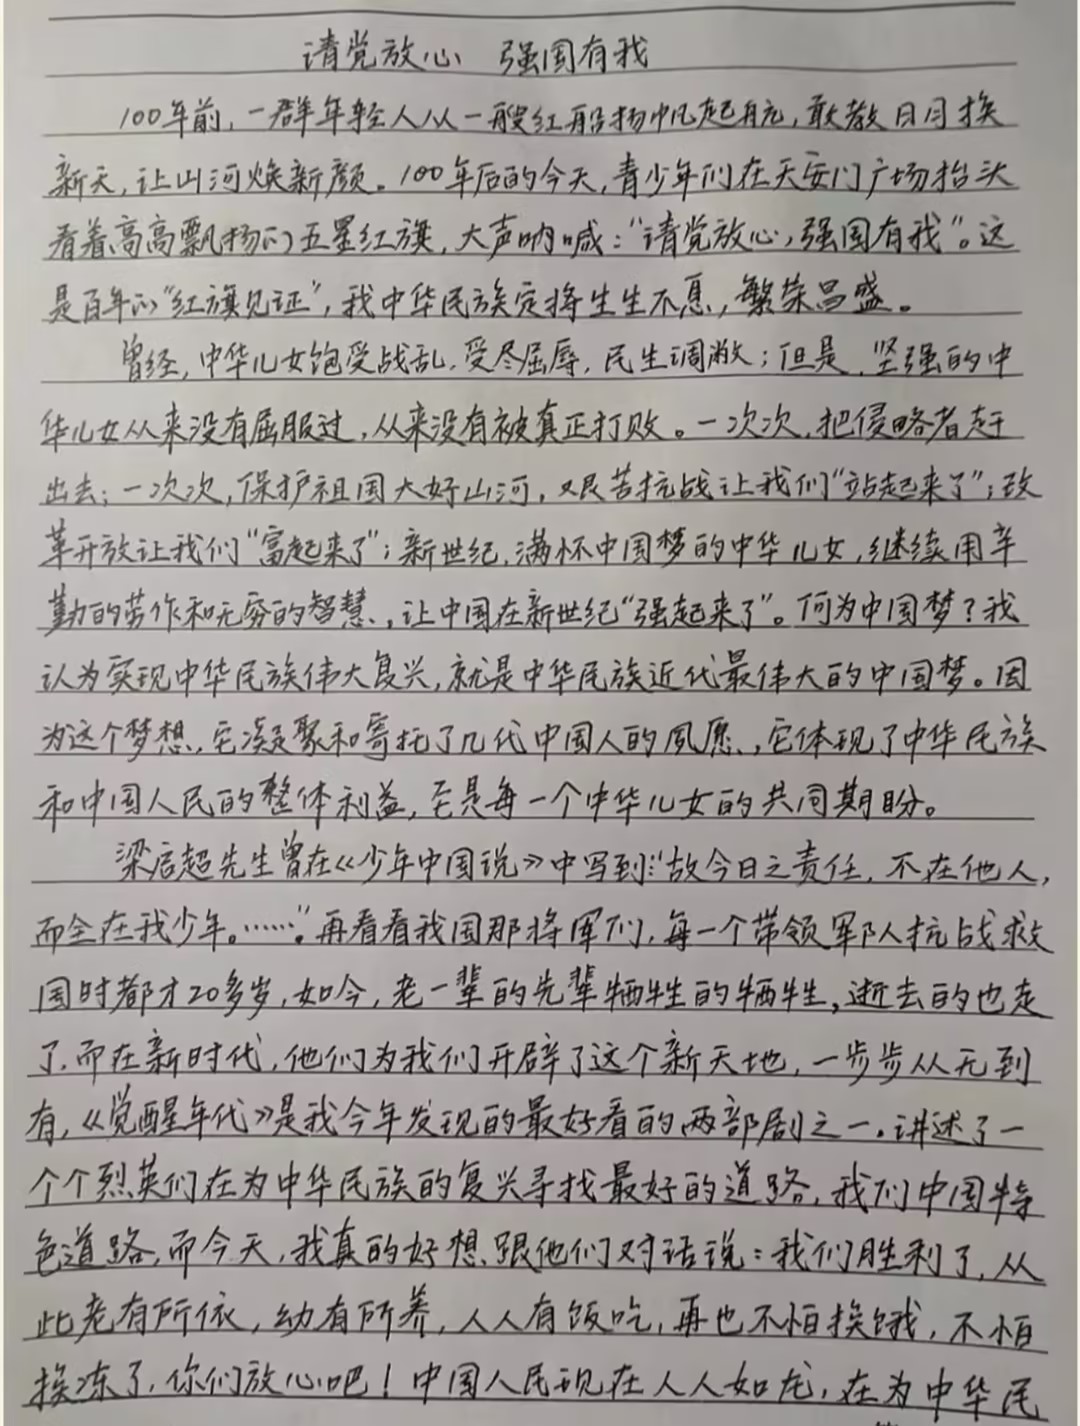 请党放心 强国有我
100年前,一群年轻人从一艘红船扬帆起航,敢教日月换
新天,让山河焕新颜。100年后的今天,青少年们在天安门广场抬头
看着高高飘扬的五星红旗,大声呐喊:“请党放心,强国有我”。这
是百年的“红旗见证”,我中华民族定将生生不息,繁荣昌盛。
曾经,中华儿女饱受战乱,受尽屈辱,民生调敝;但是,坚强的中
华儿女从来没有屈服过,从来没有被真正打败。一次次,把侵略者赶
出去;一次次,保护祖国大好山河,艰苦抗战让我们“站起来了”;改
革开放让我们“富起来了”;新世纪,满怀中国梦的中华儿女,继续用辛
勤的劳作和无穷的智慧,让中国在新世纪“强起来了”。何为中国梦?我
认为实现中华民族伟大复兴,就是中华民族近代最伟大的中国梦。因
为这个梦想,它凝聚和寄托了几代中国人的夙愿,它体现了中华民族
和中国人民的整体利益,至是每一个中华儿女的共同期盼。
梁启超先生曾在《少年中国说》中写到:“故今日之责任,不在他人,
而全在我少年。……”。再看看我国那将军们,每一个带领军队抗战救
国时都才20多岁,如今,老一辈的先辈牺牲的牺牲,逝去的也走
了,而在新时代,他们为我们开辟了这个新天地,一步步从无到
有,《觉醒年代》是我今年发现的最好看的两部剧之一。讲述了一
个个烈英们在为中华民族的复兴寻找最好的道路,我们中国特
色道路,而今天,我真的好想跟他们对话说:我们胜利了,从
此老有所依,幼有所养,人人有饭吃,再也不怕挨饿,不怕
挨冻了,你们放心吧!中国人民现在人人如龙,在为中华民